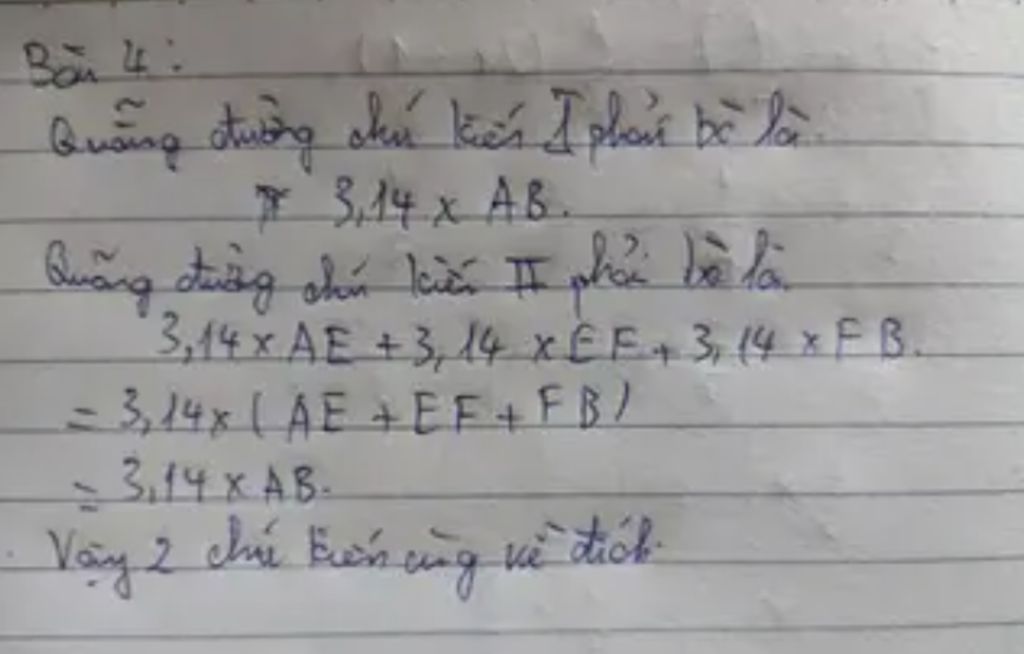 Bài 4:
Quãng đường chú kiến I phải bò là
3,14 x AB.
Quãng đường chú kiến II phải bò là.
3,14 x AE + 3,14 x EF + 3,14 x FB.
= 3,14 x ( AE + EF + FB )
= 3,14 x AB.
Vậy 2 chú kiến cùng về đích.